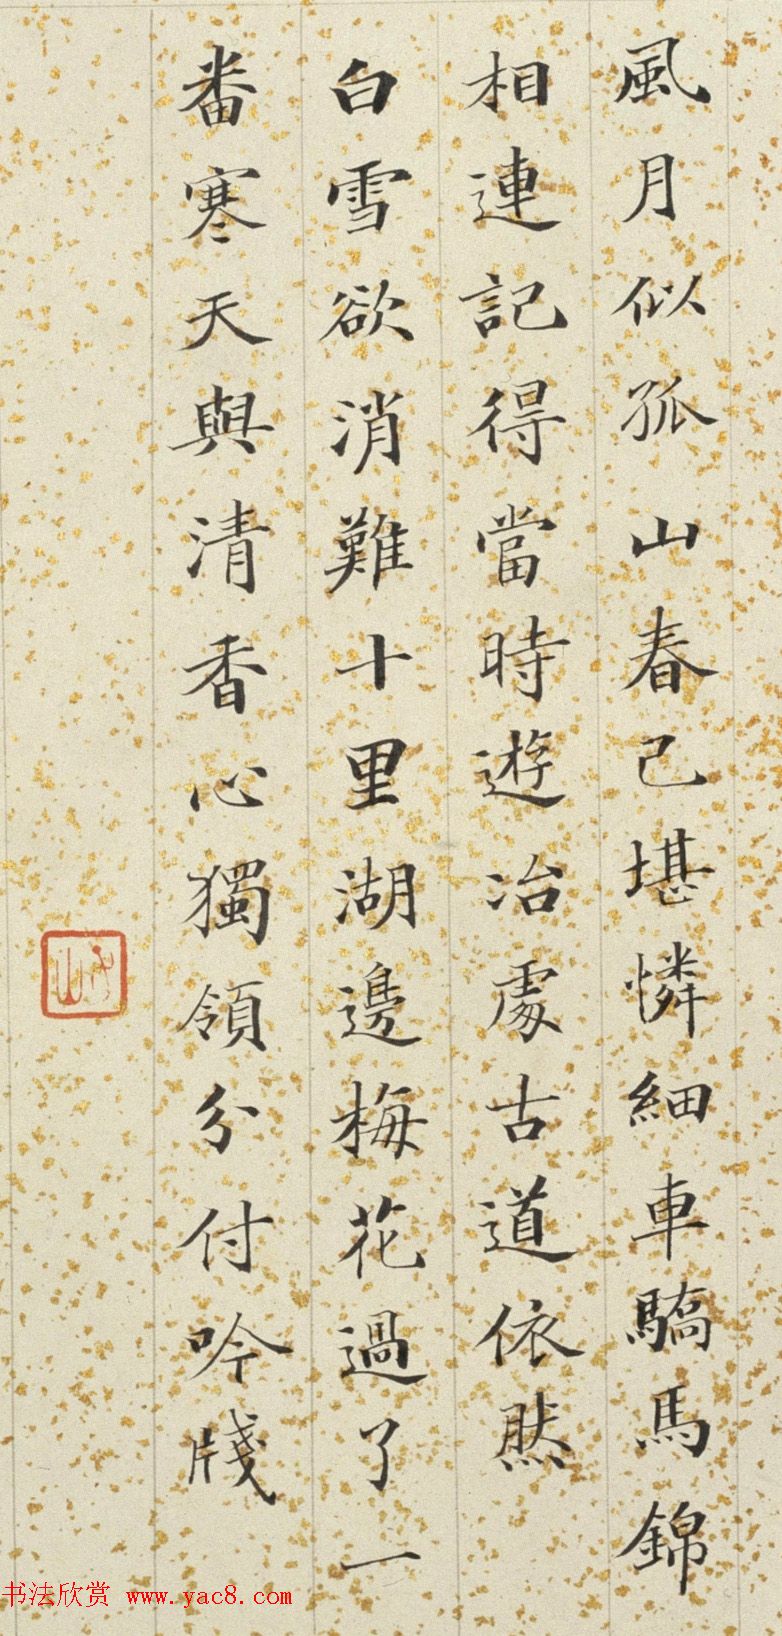 風月似孤山春已堪憐細車驕馬錦
相連記得當時遊冶處古道依然
白雪欲消難十里湖邊梅花過了一
番寒天與清香心獨領分付吟牋
书法欣赏 www.yac8.com